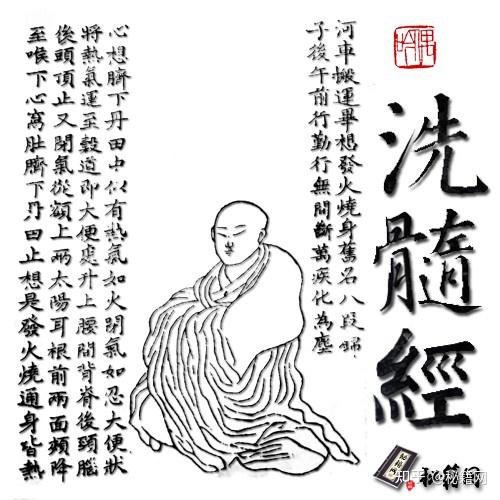 洗髓經
河車搬運畢想發火燒身舊名八段錦
子後午前行勤行無間斷萬疾化為塵
心想臍下丹田中似有熱氣如火閉氣如忍大便狀
將熱氣運至穀道即大便處升上腰間背脊後頸腦
後頭頂止又閉氣從額上兩太陽耳根前兩面頰降
至喉下心窩肚臍下丹田止想是發火燒通身皆熱
知乎 @秘籍网